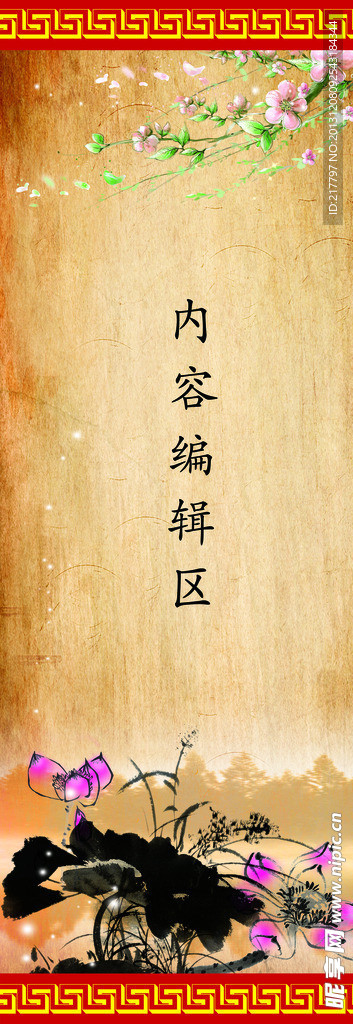 内容编辑区
ID:217797 NO:20131208092543184344
昵享网 www.nipic.cn